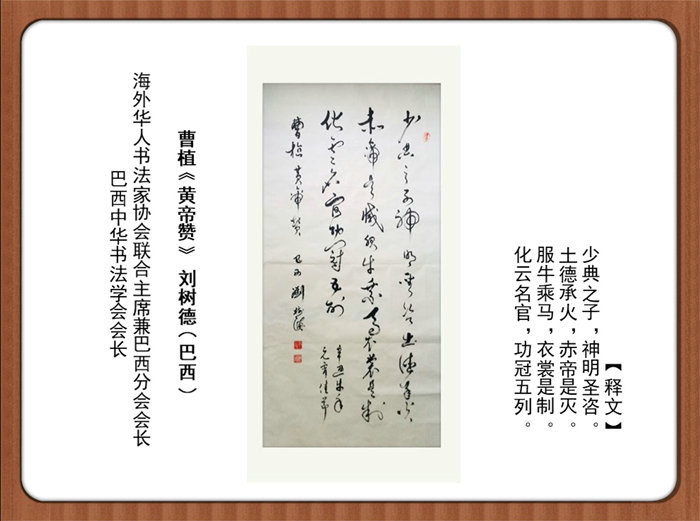 【释文】
少典之子，神明圣咨。
土德承火，赤帝是灭。
服牛乘马，衣裳是制。
化云名官，功冠五列。
少典之子神明圣咨土德承火
赤帝是滅服牛乘马衣裳是制
化云名官功冠五列
辛丑牛年
元宵佳节
曹植黄帝赞 巴西 劉树德
曹植《黄帝赞》 刘树德（巴西）
海外华人书法家协会联合主席兼巴西分会会长
巴西中华书法学会会长